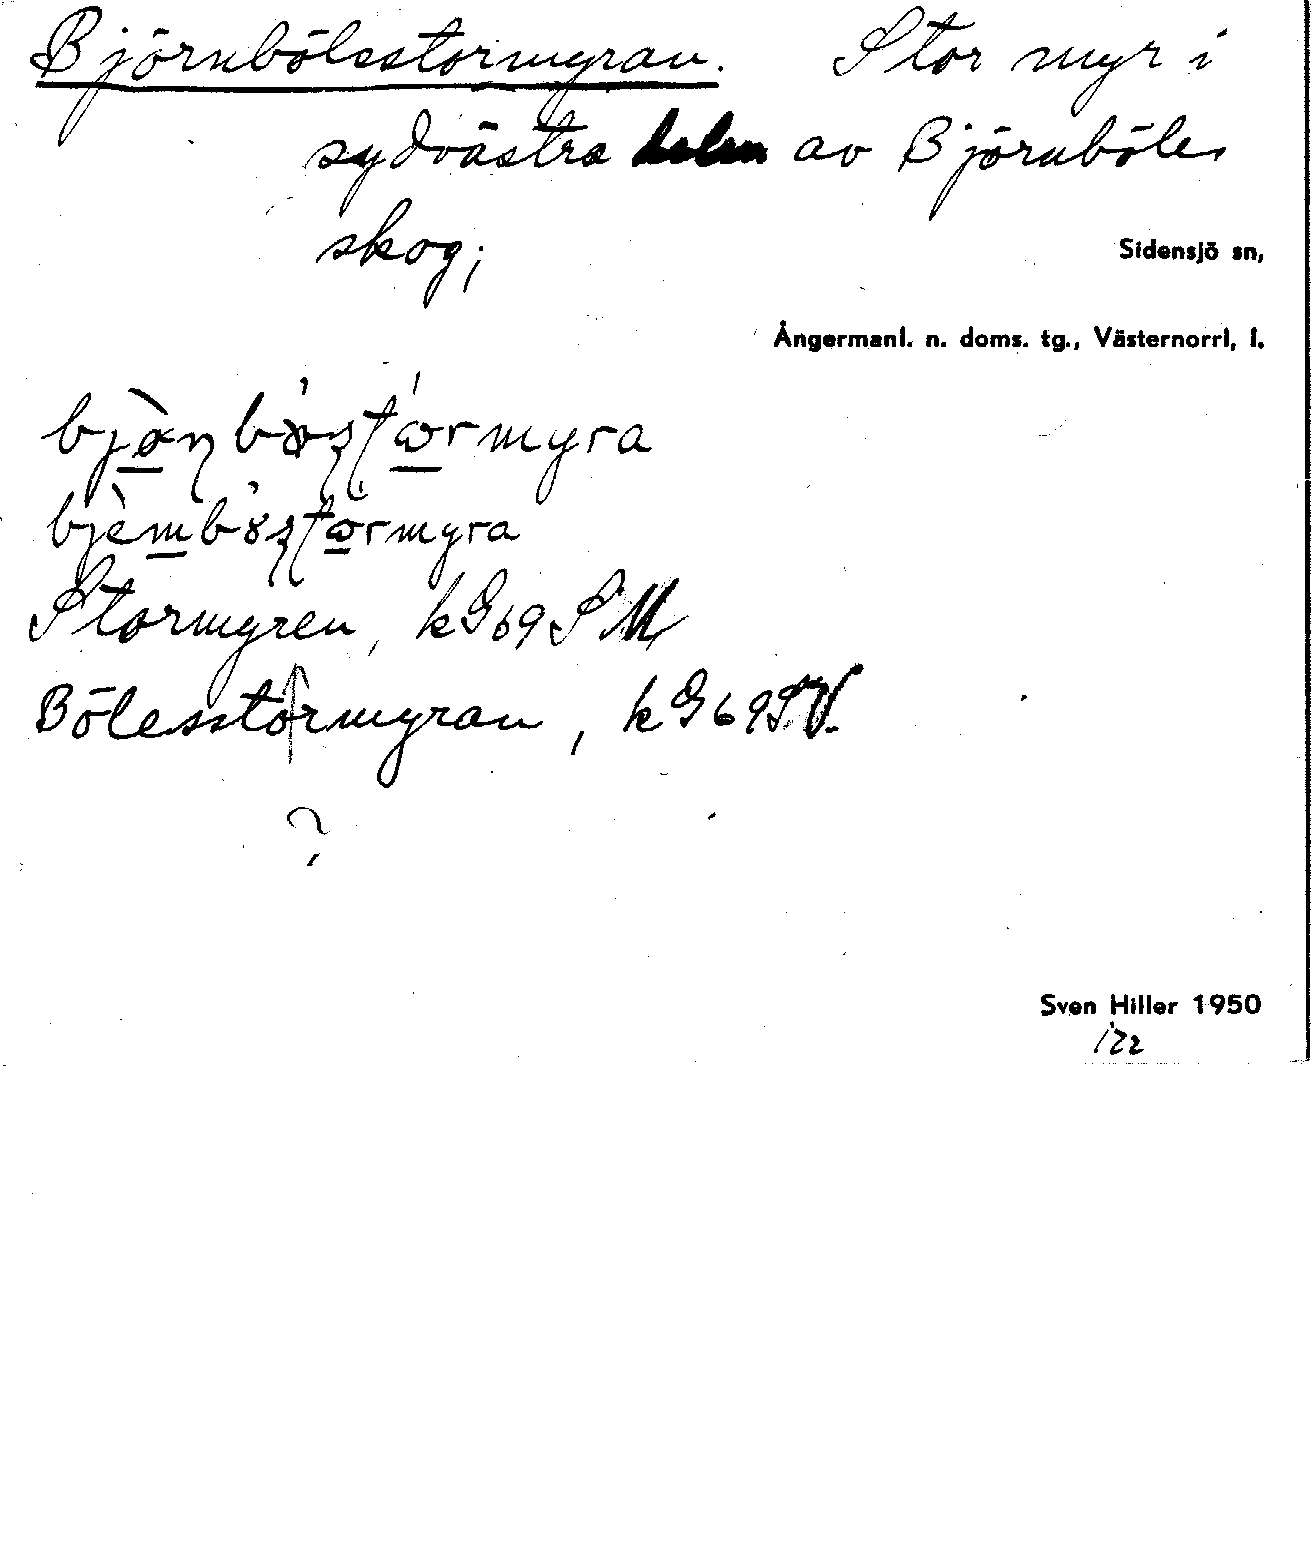 Björnbölesstormyran. Stor myr i
sydvästra delen av Björnböles
skog;
Sidensjö sn,
Ångermanl. n. doms. tg., Västernorrl, l.
Stormyren, kG69SM
Bölesstormyran, kG69SV.
?
Sven Hiller 1950